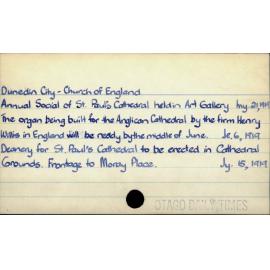 Dunedin City - Church of England
Annual Social of St. Paul's Cathedral held in Art Gallery My. 21, 1919
The organ being built for the Anglican Cathedral by the firm Henry
Willis in England will be ready by the middle of June. Je. 6, 1919
Deanery for St. Paul's Cathedral to be erected in Cathedral
Grounds. Frontage to Moray Place. Jy. 15, 1919
OTAGO DAILY TIMES